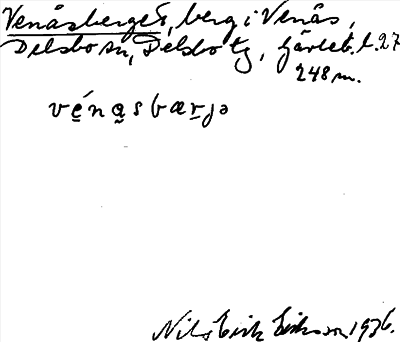 Venåsberget, berg i Venås,
Delsbo sn, Delsbo tg, Gävleb. l. 27
248 m.
vé̱na̱sbæṟjə
Nils Erik Eriksson 1936.